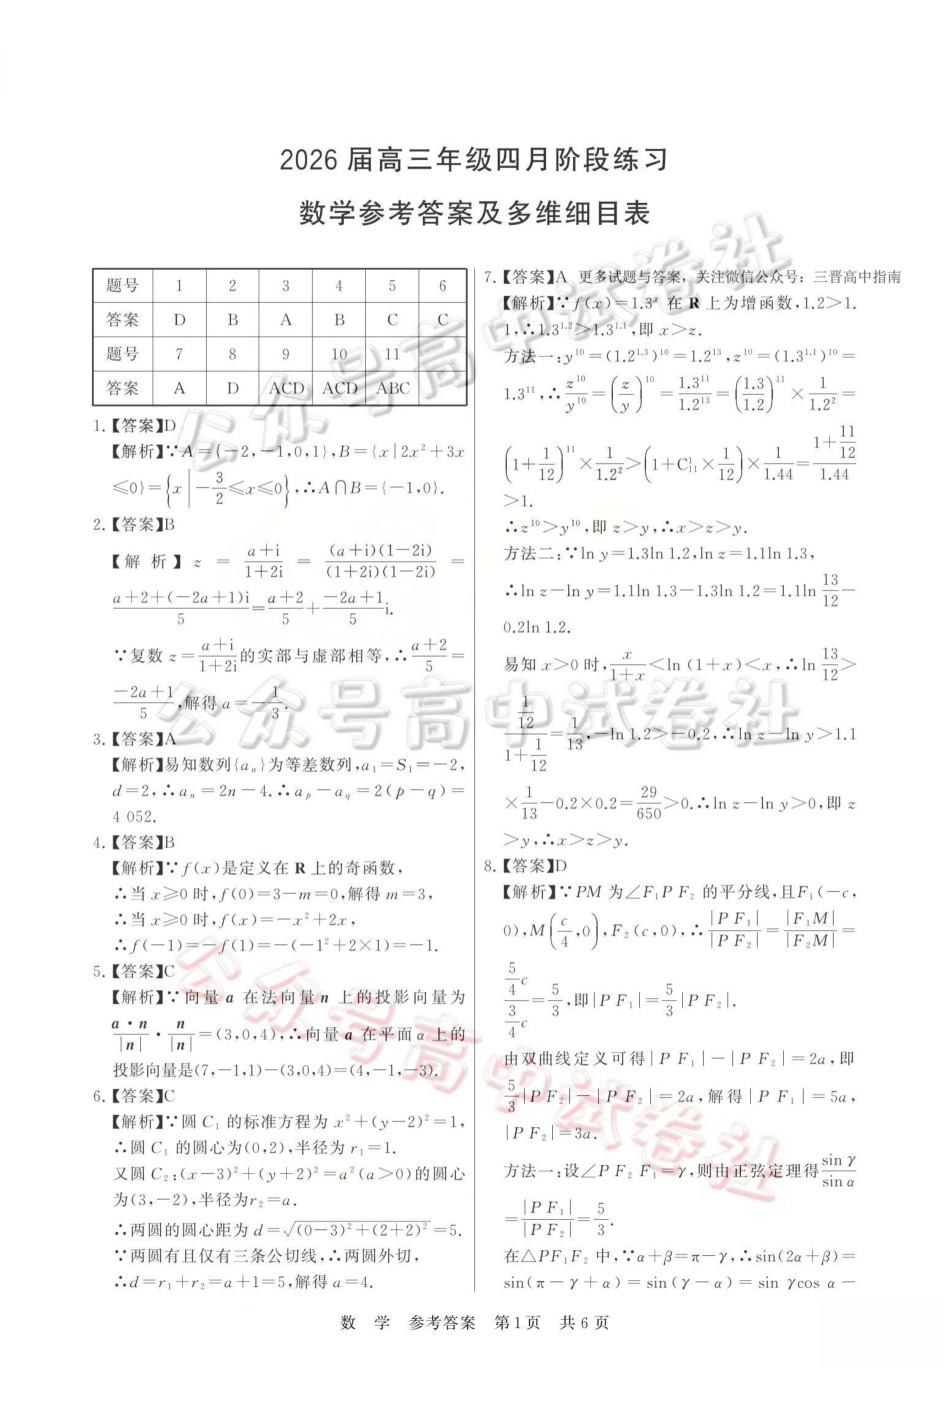 2026 届高三年级四月阶段练习
数学参考答案及多维细目表
题号 1 2 3 4 5 6
答案 D B A B C C
题号 7 8 9 10 11
答案 A D ACD ACD ABC
1.【答案】D
【解析】∵A={-2,-1,0,1},B={x|2x²+3x
≤0}={x|-3/2≤x≤0},∴A∩B={-1,0}.
2.【答案】B
【解析】z=(a+i)/(1+2i)=((a+i)(1-2i))/((1+2i)(1-2i))=
(a+2+(-2a+1)i)/5=(a+2)/5+(-2a+1)/5 i.
∵复数z=(a+i)/(1+2i)的实部与虚部相等,∴(a+2)/5=
(-2a+1)/5,解得a=-1/3.
3.【答案】A
【解析】易知数列{aₙ}为等差数列,a₁=S₁=-2,
d=2,∴aₙ=2n-4.∴aₚ-a_q=2(p-q)=
4 052.
4.【答案】B
【解析】∵f(x)是定义在R上的奇函数,
∴当x≥0时,f(0)=3-m=0,解得m=3,
∴当x≥0时,f(x)=-x²+2x,
∴f(-1)=-f(1)=-(-1²+2×1)=-1.
5.【答案】C
【解析】∵向量a在法向量n上的投影向量为
(a·n)/|n|·n/|n|=(3,0,4),∴向量a在平面α上的
投影向量是(7,-1,1)-(3,0,4)=(4,-1,-3).
6.【答案】C
【解析】∵圆C₁的标准方程为x²+(y-2)²=1,
∴圆C₁的圆心为(0,2),半径为r₁=1.
又圆C₂:(x-3)²+(y+2)²=a²(a>0)的圆心
为(3,-2),半径为r₂=a.
∴两圆的圆心距为d=√((0-3)²+(2+2)²)=5.
∵两圆有且仅有三条公切线,∴两圆外切,
∴d=r₁+r₂=a+1=5,解得a=4.
7.【答案】A 更多试题与答案,关注微信公众号:三晋高中指南
【解析】∵f(x)=1.3ˣ在R上为增函数,1.2>1.
1,∴1.3^1.2>1.3^1.1,即x>z.
方法一:y¹⁰=(1.2^1.3)¹⁰=1.2¹³,z¹⁰=(1.3^1.1)¹⁰=
1.3¹¹,∴z¹⁰/y¹⁰=(z/y)¹⁰=1.3¹¹/1.2¹³=(1.3/1.2)¹¹×1/1.2²=
(1+1/12)¹¹×1/1.2²>(1+C¹₁₁×1/12)×1/1.44=(1+11/12)/1.44
>1.
∴z¹⁰>y¹⁰,即z>y,∴x>z>y.
方法二:∵ln y=1.3ln 1.2,ln z=1.1ln 1.3,
∴ln z-ln y=1.1ln 1.3-1.3ln 1.2=1.1ln 13/12-
0.2ln 1.2.
易知x>0时,x/(1+x)<ln(1+x)<x,∴ln 13/12>
(1/12)/(1+1/12)=1/13,-ln 1.2>-0.2,∴ln z-ln y>1.1
×1/13-0.2×0.2=29/650>0.∴ln z-ln y>0,即z
>y,∴x>z>y.
8.【答案】D
【解析】∵PM为∠F₁PF₂的平分线,且F₁(-c,
0),M(c/4,0),F₂(c,0),∴|PF₁|/|PF₂|=|F₁M|/|F₂M|=
(5/4 c)/(3/4 c)=5/3,即|PF₁|=5/3|PF₂|.
由双曲线定义可得|PF₁|-|PF₂|=2a,即
5/3|PF₂|-|PF₂|=2a,解得|PF₁|=5a,
|PF₂|=3a.
方法一:设∠PF₂F₁=γ,则由正弦定理得sin γ/sin α
=|PF₁|/|PF₂|=5/3.
在△PF₁F₂中,∵α+β=π-γ,∴sin(2α+β)=
sin(π-γ+α)=sin(γ-α)=sin γcos α-
数 学 参考答案 第1页 共6页
公众号高中试卷社
公众号高中试卷社
公众号高中试卷社